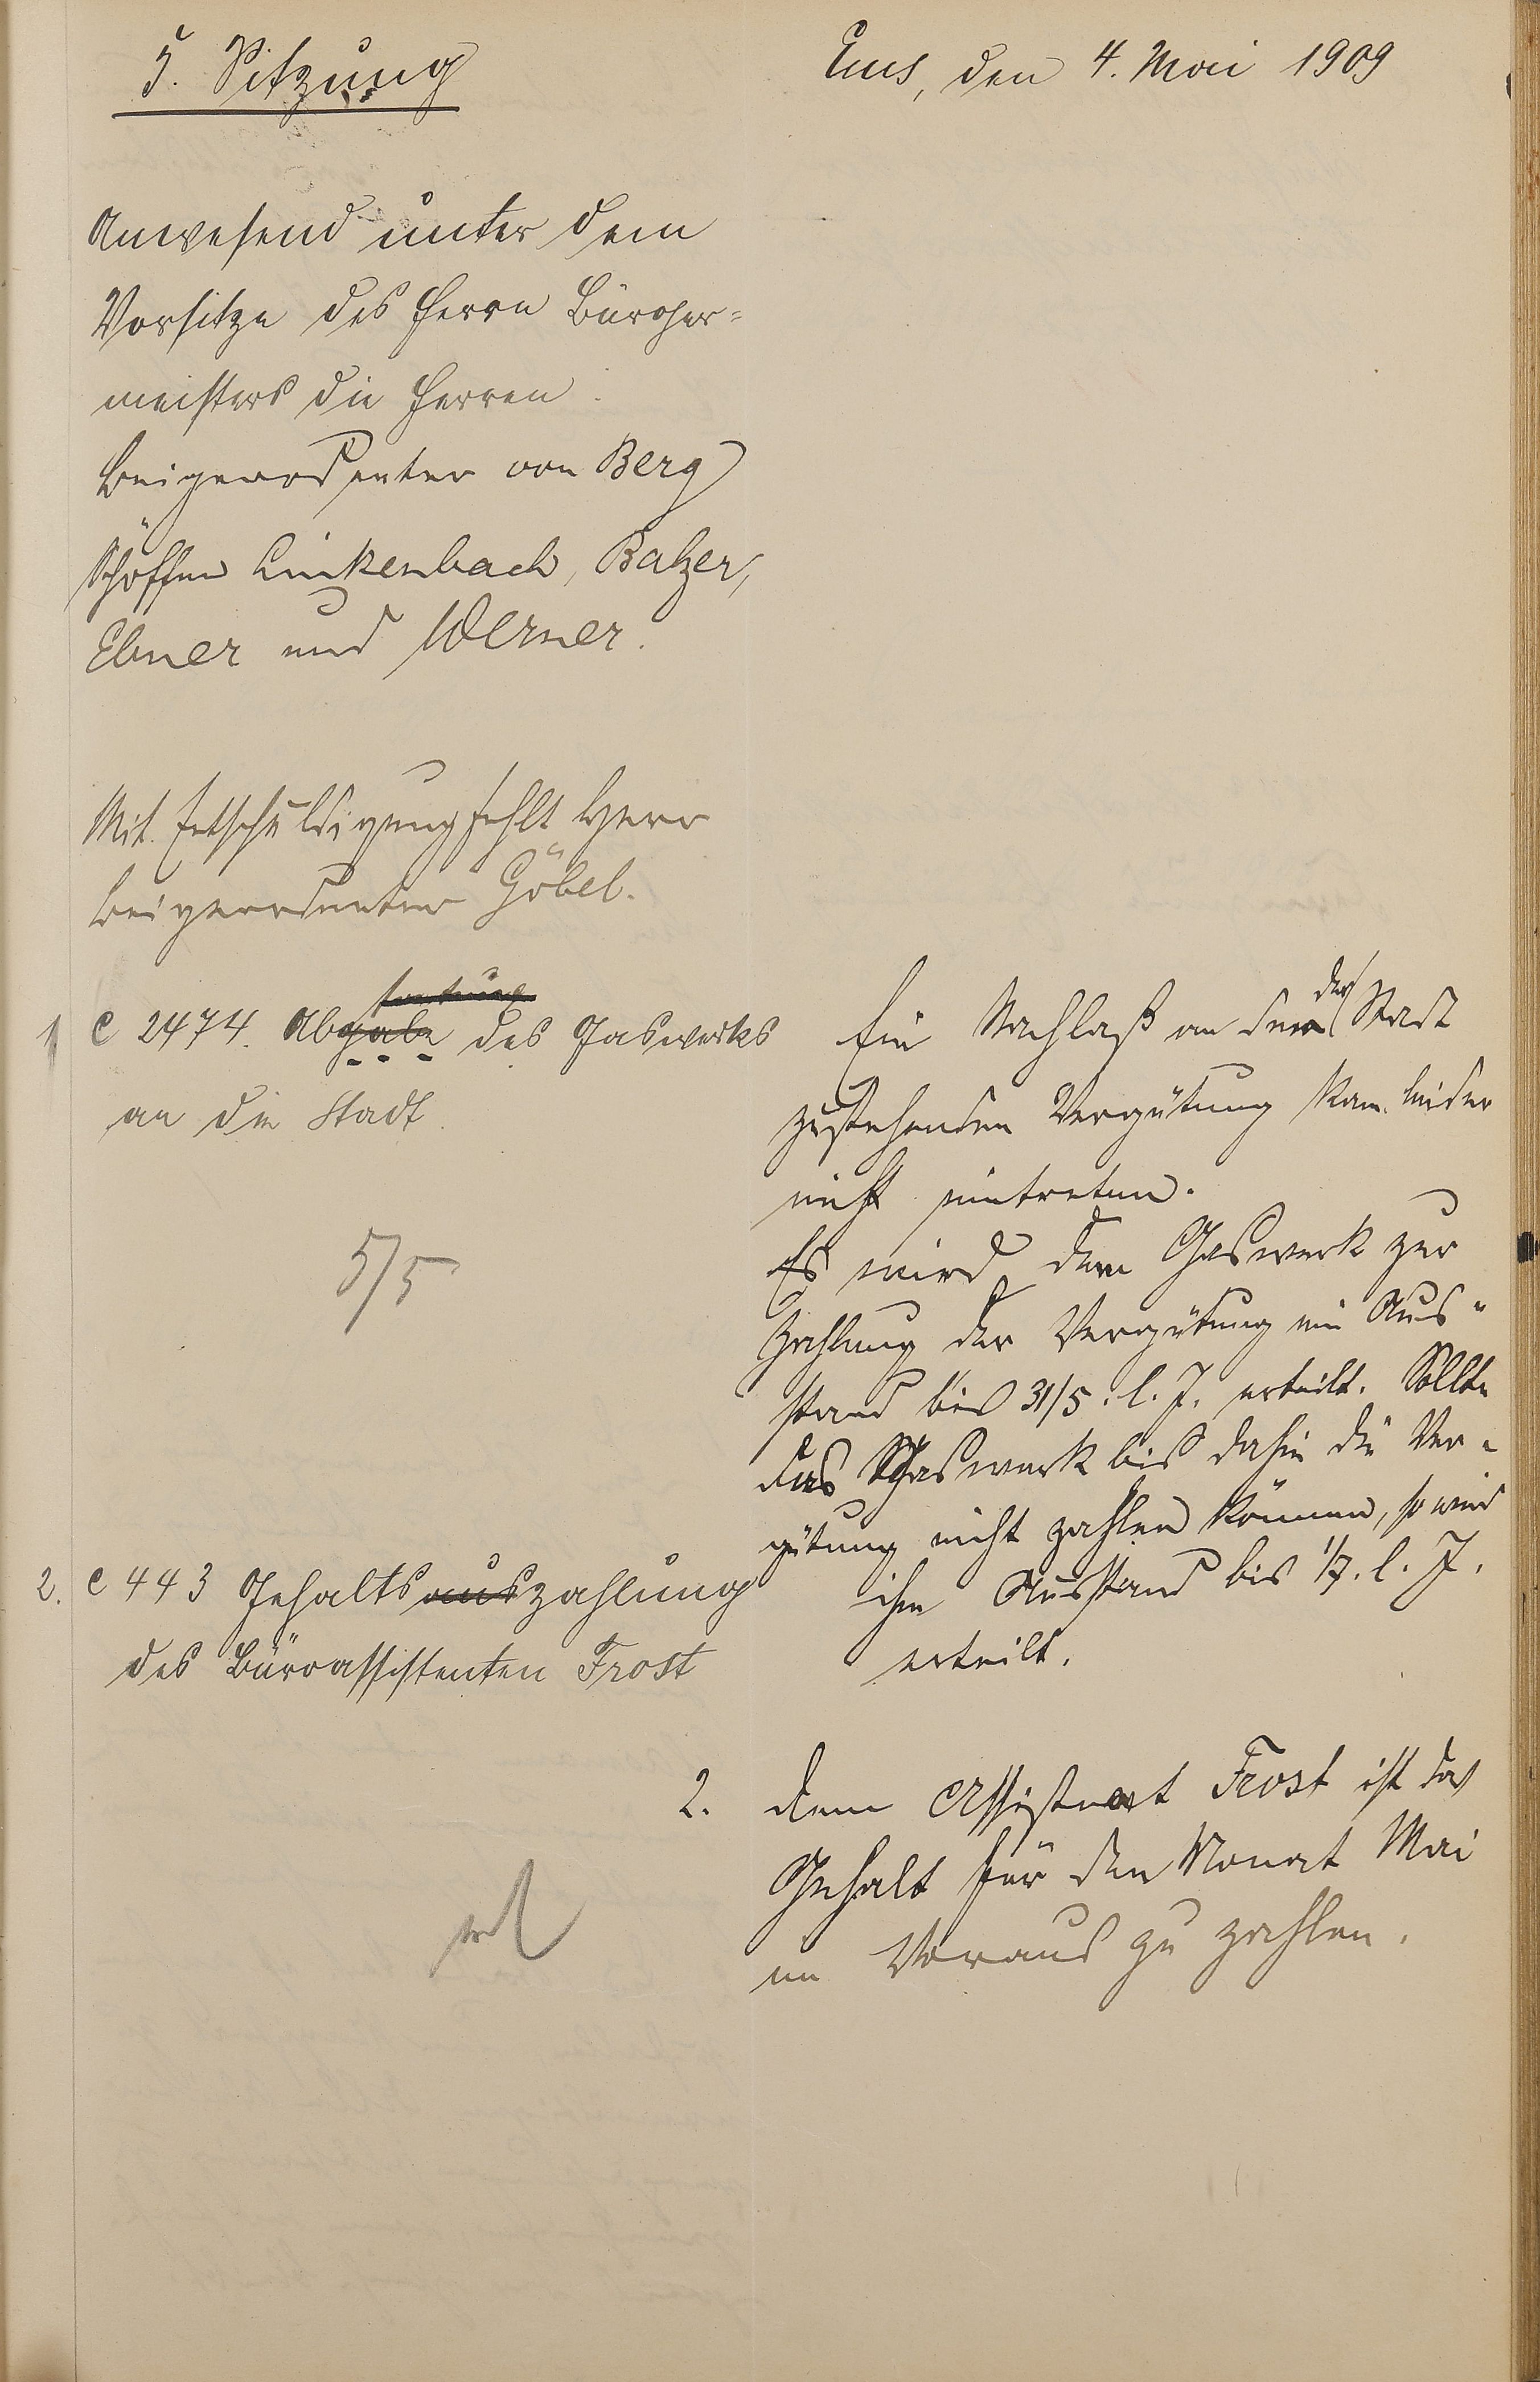 5. Sitzung
Ems, den 4. Mai 1909
Anwesend unter dem
Vorsitze des Herrn Bürger=
meisters die Herren
Beigeordneter von Berg
Schöffen Linkenbach, Balzer,
Ebner und Werner.
Mit Entschuldigung fehlt Herr
Beigeordneter Göbel.
1 C 2474. Abgabe des Gaswerks
an die Stadt.
5/5
2. C 443 Gehaltsauszahlung
des Büroassistenten Frost
Ein Nachlaß an der der Stadt
zustehenden Vergütung kann leider
nicht eintreten.
Es wird dem Gaswerk zur
Zahlung der Vergütung ein Aus"
stand bis 31/5. l. J. erteilt. Sollte
das Gaswerk bis dahin die Ver-
gütung nicht zahlen können, so wird
ihm Ausstand bis 1/7. l. J.
erteilt.
2. Dem Assistent Frost ist das
Gehalt für den Monat Mai
im Voraus zu zahlen.